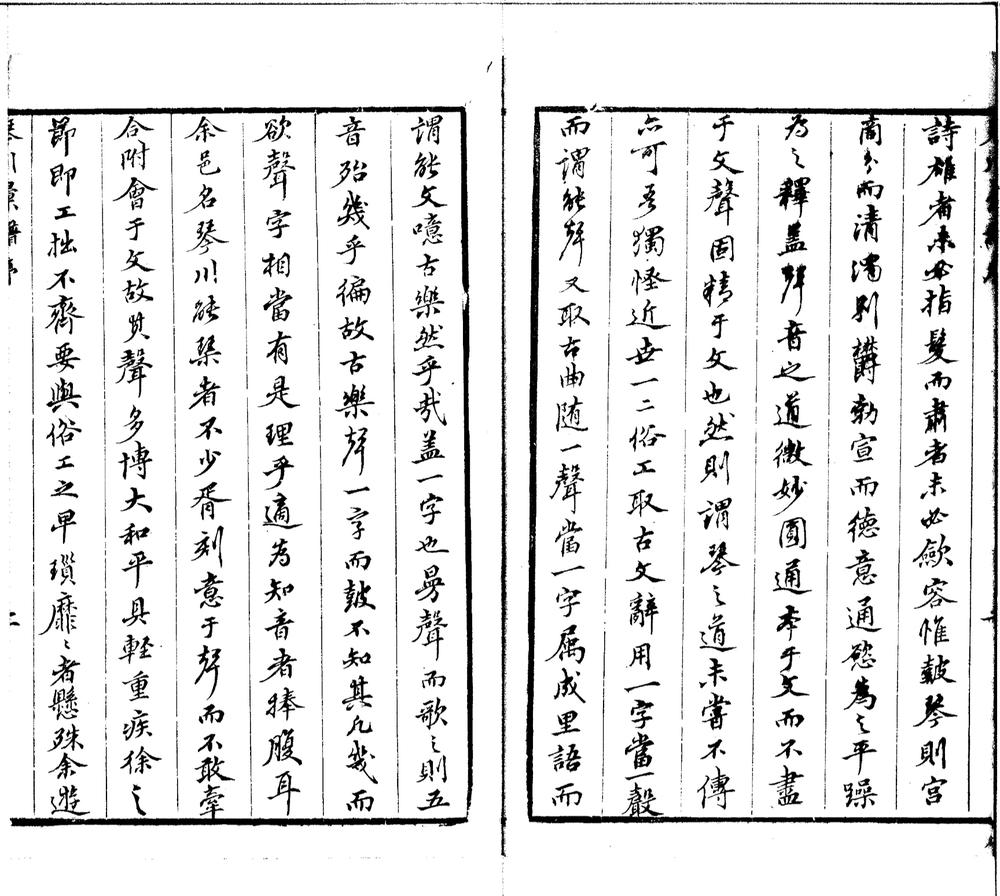 詩雄者未必指髮而肅者未必歛容惟皷琴則宮
商分而清濁别欝勃宣而徳意通慾為之平躁
為之釋盖聲音之道微妙圓通本于文而不盡
于文聲固精于文也然則謂琴之道未嘗不傳
亦可吾獨怪近世一二俗工取古文辭用一字當一聲
而謂能聲又取古曲随一聲當一字属成里語而
謂能文噫古樂然乎哉盖一字也曼聲而歌之則五
音殆幾乎徧故古樂聲一字而皷不知其凡幾而
欲聲字相當有是理乎適為知音者捧腹耳
余邑名琴川能琴者不少胥刻意于聲而不敢牽
合附會于文故其聲多博大和平具輕重疾徐之
節即工拙不齊要與俗工之卑瑣靡〻者懸殊余遊